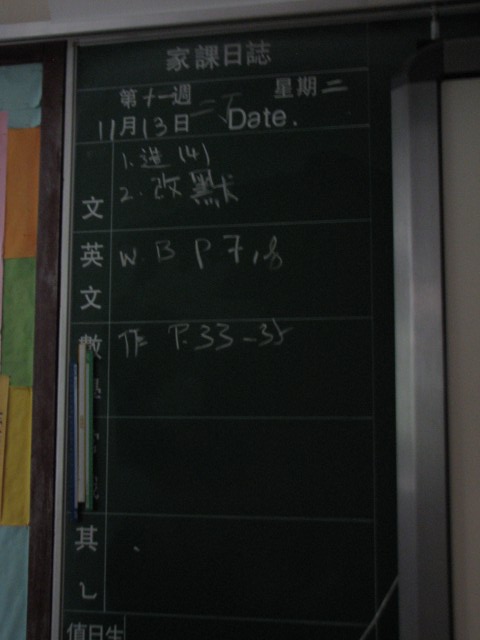 家課日誌
第十一週 星期二
11月13日 Date.
1. 造(4)
文 2. 改默
英文 W.B P 7,8
數 作 P.33-35
其
值日生